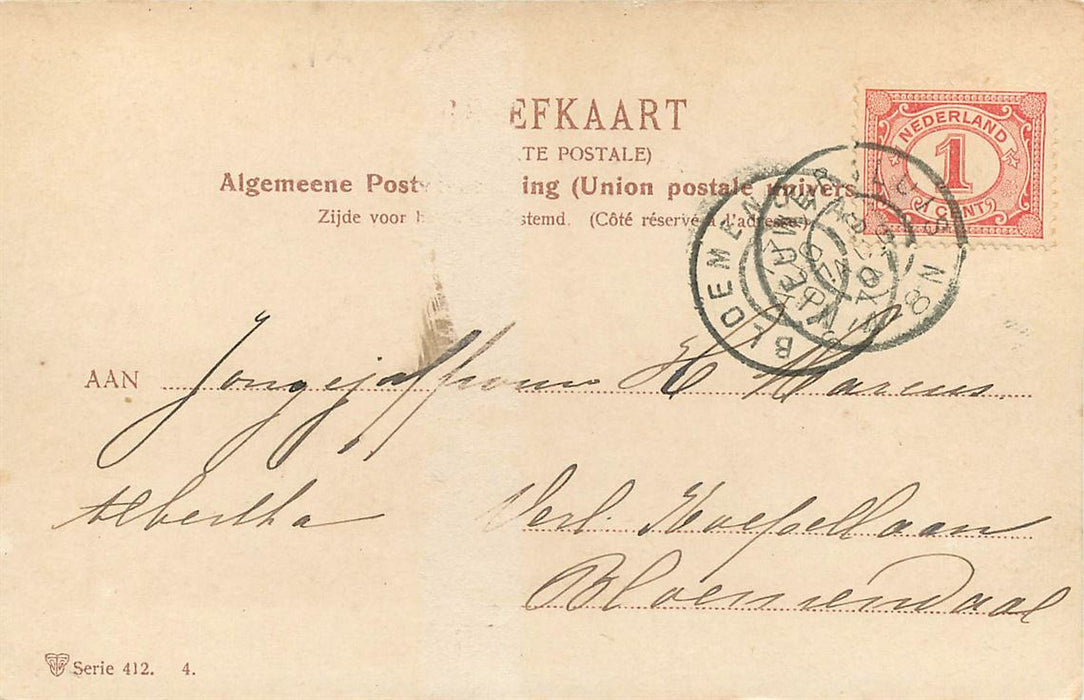 EFKAART
TE POSTALE)
Algemeene Post ing (Union postale univers
Zijde voor stemd. (Côté réservé à l'adresse)
NEDERLAND
1
CENT
BLOEMEN
AAN Jongejuffrouw H Marcus.
Albertha Verl. Koepellaan
Bloemendaal
Serie 412. 4.